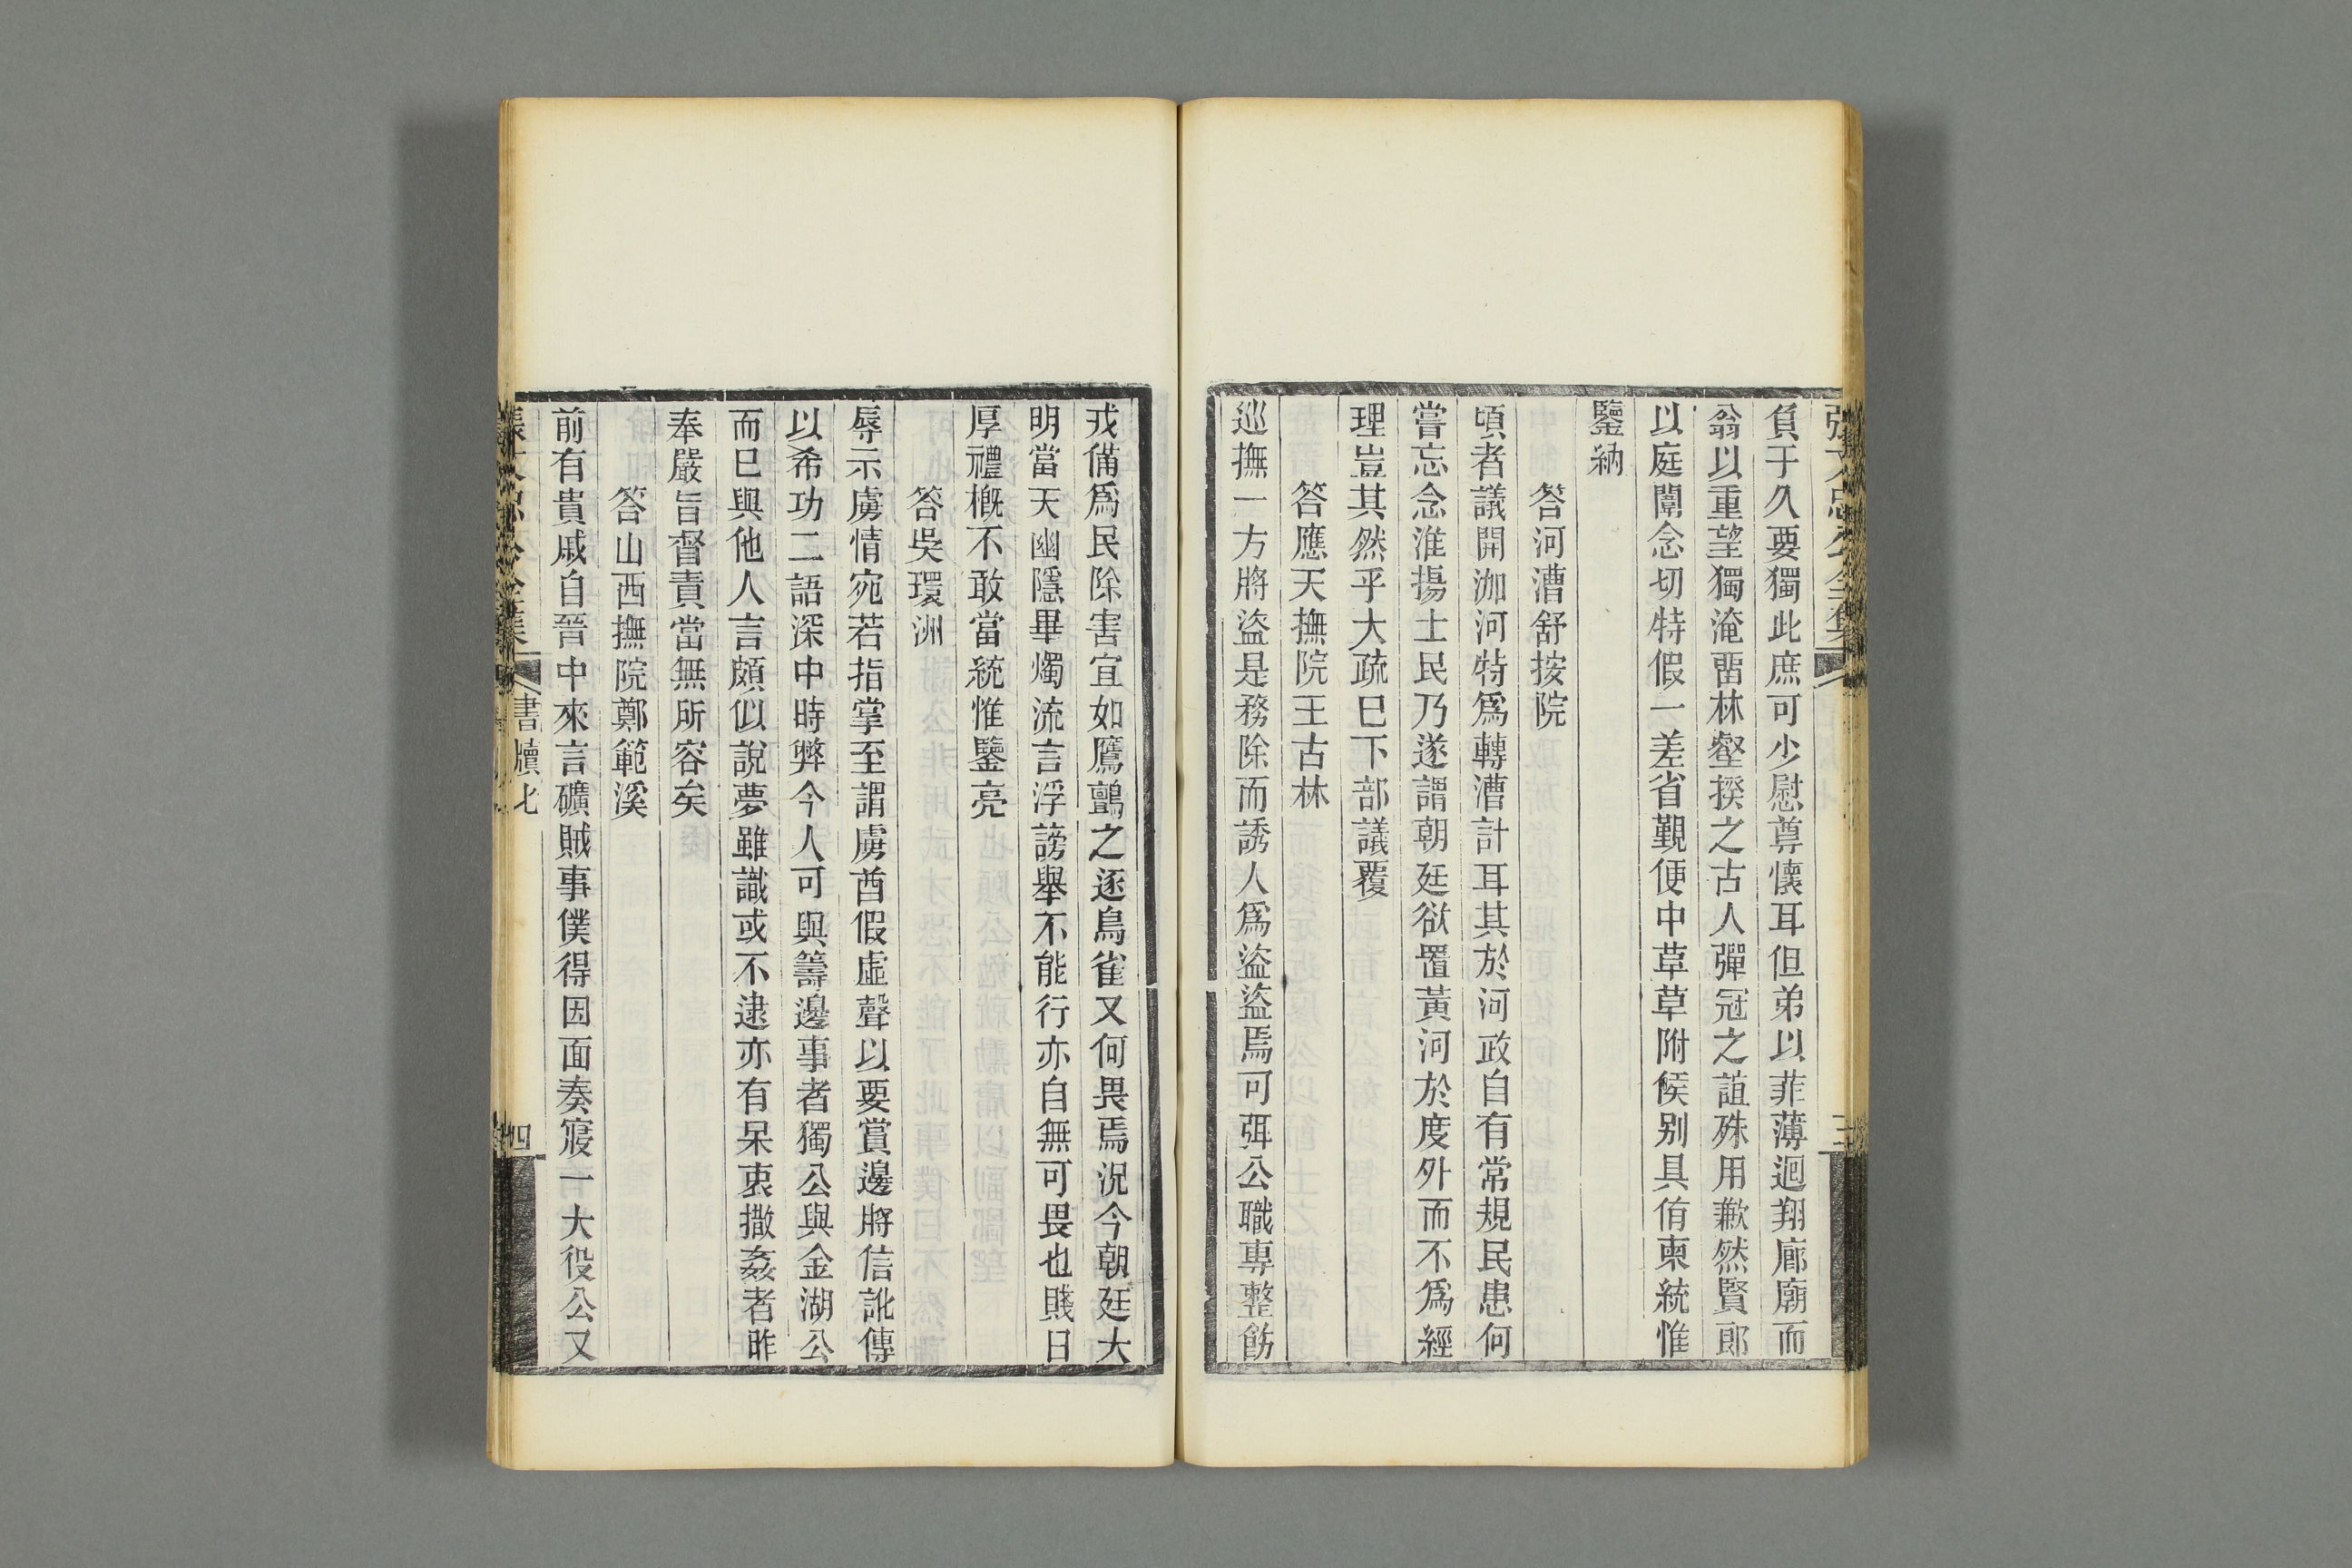 負于久要獨此庶可少慰尊懷耳但弟以菲薄迴翔廊廟而
翁以重望獨淹畱林壑揆之古人彈冠之誼殊用歉然賢郎
以庭闈念切特假一差省覲便中草草附候别具侑柬統惟
鑒納
答河漕舒按院
頃者議開泇河特爲轉漕計耳其於河政自有常規民患何
嘗忘念淮揚士民乃遂謂朝廷欲置黃河於度外而不爲經
理豈其然乎大疏巳下部議覆
答應天撫院王古林
巡撫一方將盜是務除而誘人爲盜盜焉可弭公職專整飭
戎備爲民除害宜如鷹鸇之逐鳥雀又何畏焉況今朝廷大
明當天幽隱畢燭流言浮謗舉不能行亦自無可畏也賤日
厚禮槪不敢當統惟鑒亮
答吳環洲
辱示虜情宛若指掌至謂虜酋假虛聲以要賞邊將信訛傳
以希功二語深中時弊今人可與籌邊事者獨公與金湖公
而巳與他人言頗似說夢雖識或不逮亦有呆衷撒姦者昨
奉嚴旨督責當無所容矣
答山西撫院鄭範溪
前有貴戚自晉中來言礦賊事僕得因面奏寢一大役公又
書牘七
四